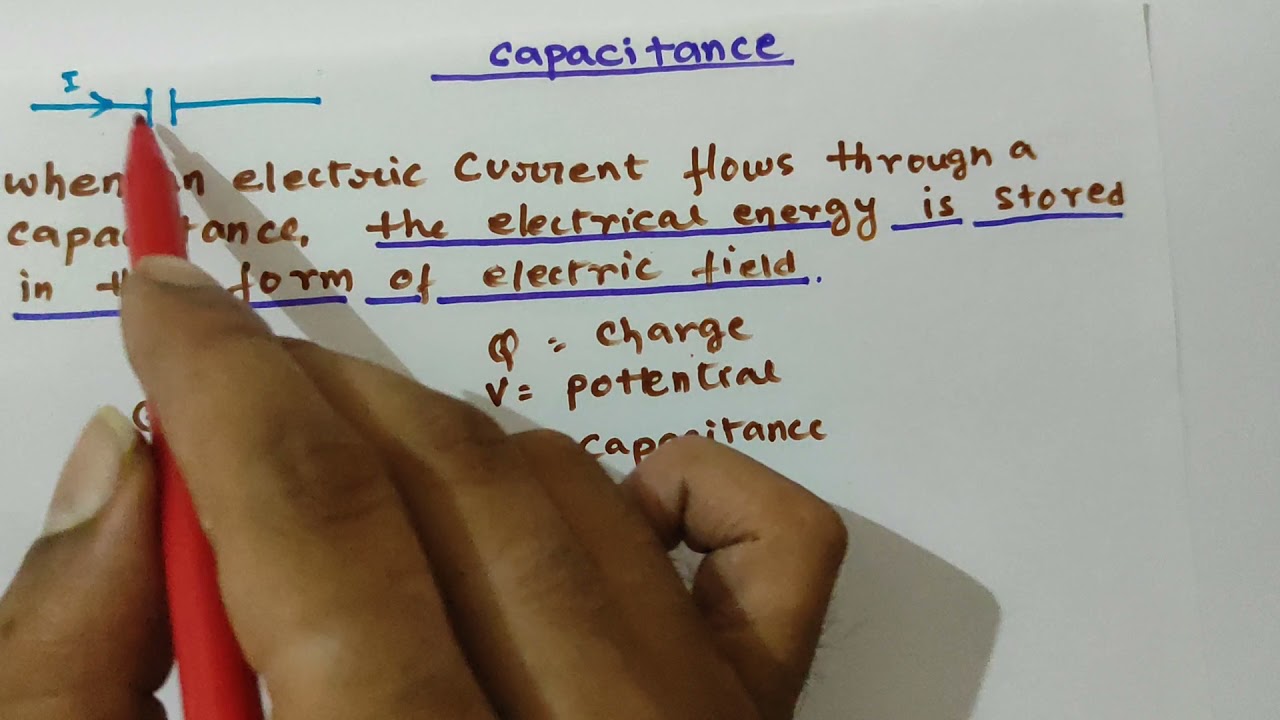 capacitance
I
when an electric current flows through a
capacitance, the electrical energy is stored
in the form of electric field.
Q = charge
V = pottential
capacitance